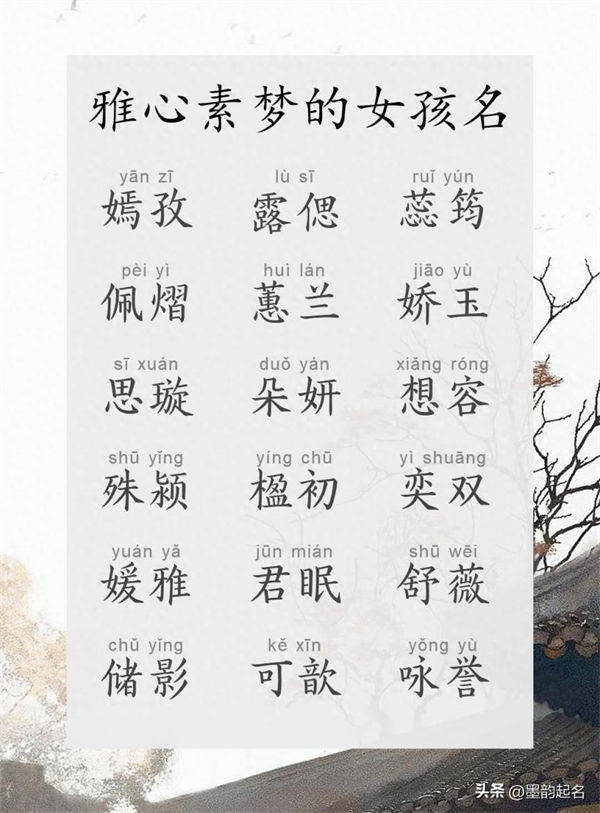 雅心素梦的女孩名
yān zī lù sī ruǐ yún
嫣孜 露偲 蕊筠
pèi yì huì lán jiāo yù
佩熠 蕙兰 娇玉
sī xuán duǒ yán xiǎng róng
思璇 朵妍 想容
shū yǐng yíng chū yì shuāng
殊颍 楹初 奕双
yuán yǎ jūn mián shū wēi
媛雅 君眠 舒薇
chǔ yǐng kě xīn yǒng yù
储影 可歆 咏誉
头条 @墨韵起名